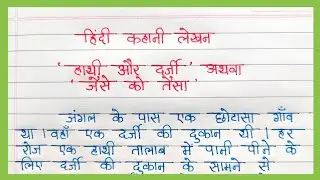 हिंदी कहानी लेखन
' हाथी और दर्जी ' अथवा
' जैसे को तैसा '
जंगल के पास एक छोटासा गाँव
था । वहाँ एक दर्जी की दुकान थी । हर
रोज एक हाथी तालाब में पानी पीने के
लिए दर्जी की दुकान के सामने से